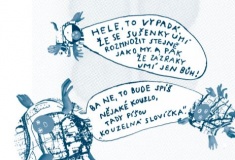 HELE, TO VYPADÁ,
ŽE SE SUŠENKY UMÍ
ROZMNOŽIT STEJNĚ
JAKO MY. A PAK
ŽE ZÁZRAKY
UMÍ JEN BŮH!
BA NE, TO BUDE SPÍŠ
NĚJAKÉ KOUZLO,
TADY PÍŠOU
„KOUZELNÁ SLOVÍČKA“.